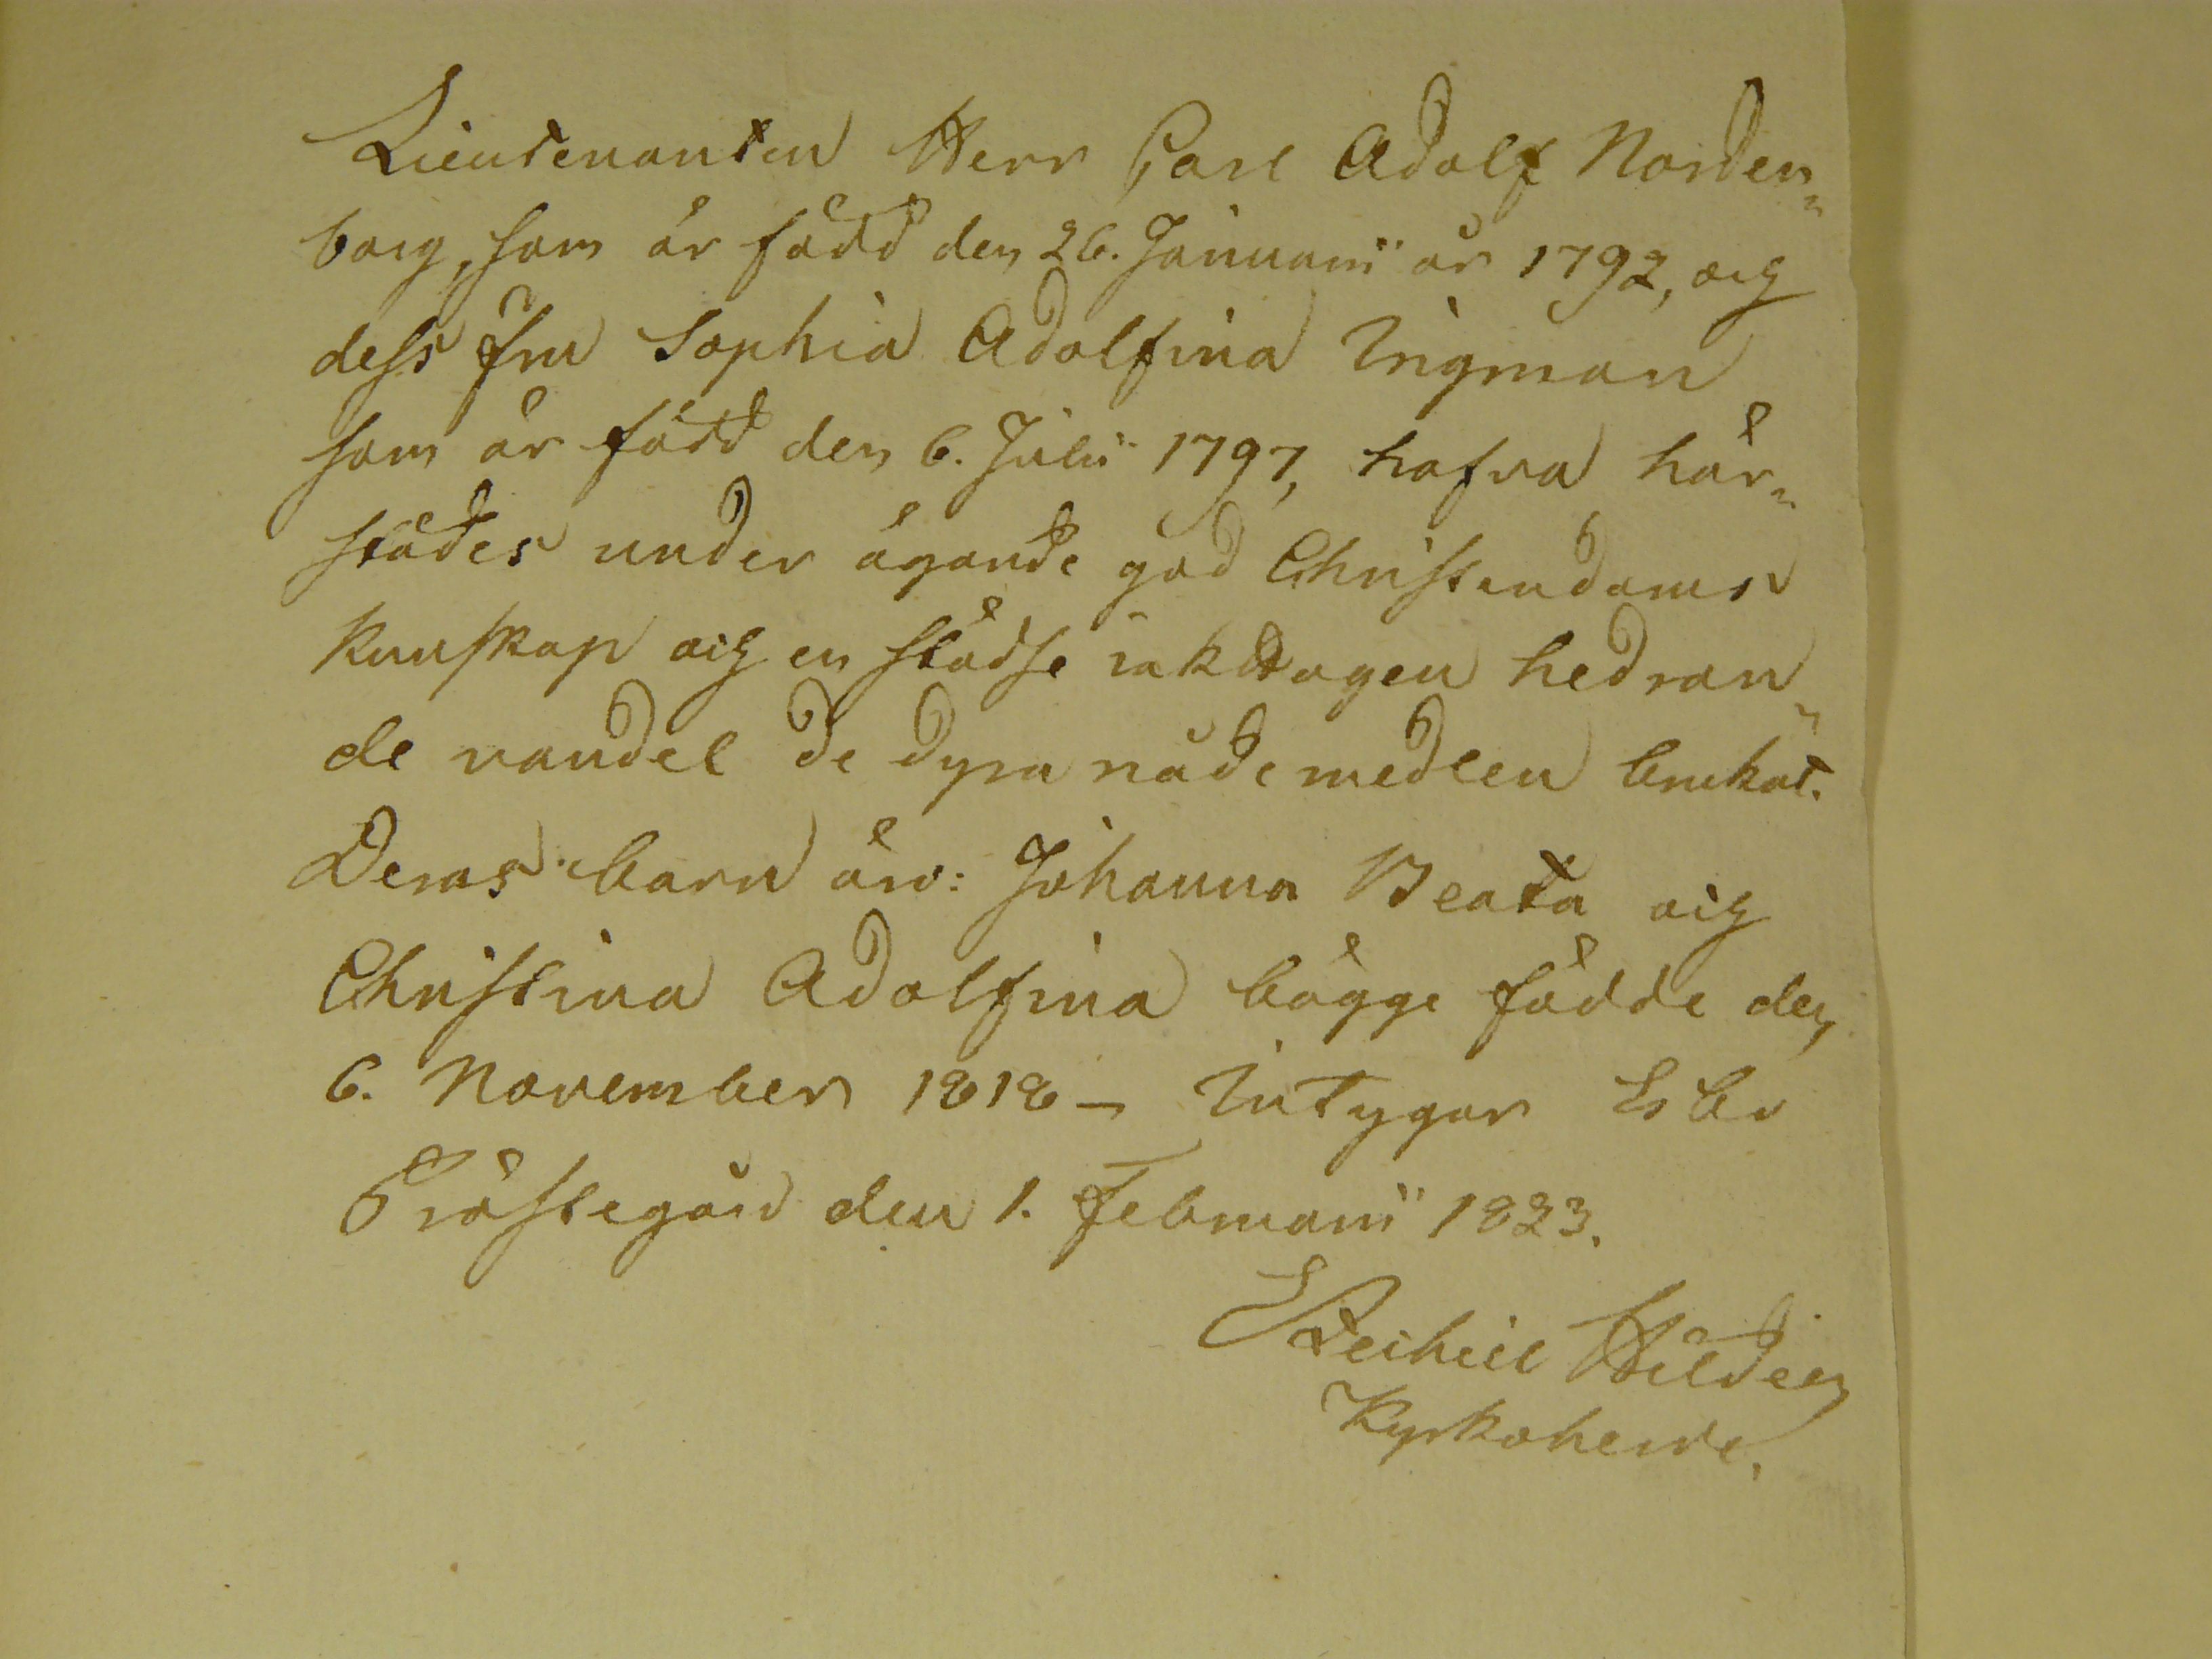 Lieutenanten Herr Carl Adolf Norden„
borg, som är född den 26. Januarii år 1792, och
dess Fru Sophia Adolfina Ingman
som är född den 6. Julii 1797, hafva här„
städes under ägande god Christendoms
Kunskap och en städse iakttagen hedran„
de vandel de dyra nådemedlen brukat.
Deras barn äro: Johanna Beata och
Christina Adolfina bägge födde den
6. November 1818 – Intygar Esbo
Prästegård den 1. Februarii 1823.
Hildeen
Kyrkoherde.